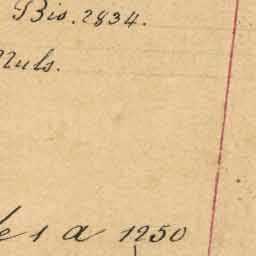 Bis. 2834.
Nuls.
e 1 a 1250